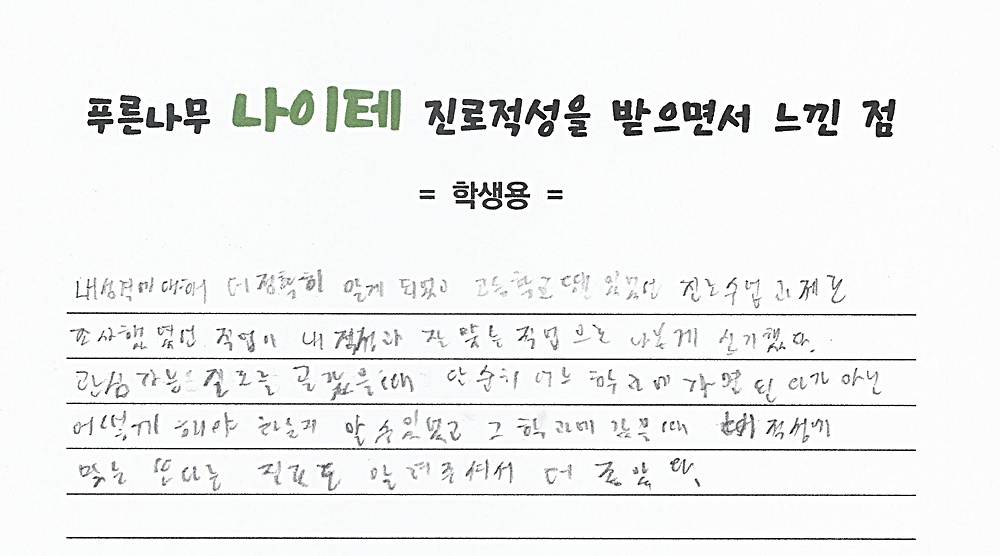 푸른나무 나이테 진로적성을 받으면서 느낀 점
= 학생용 =
내성격에대해 더정확히 알게 되었고 고등학교땐 있었던 진로수업 과제로
조사했 었던 직업이 내 적성과 잘 맞는 직업 으로 나온게 신기했다.
관심 가는 진로를 골랐을때 단순히 어느 학과에 가면 된 다가 아닌
어떻게 해야 하는지 알 수있었고 그 학과에 갔을때 내 적성에
맞는 또다른 진로도 알려주셔서 더 좋았 다.